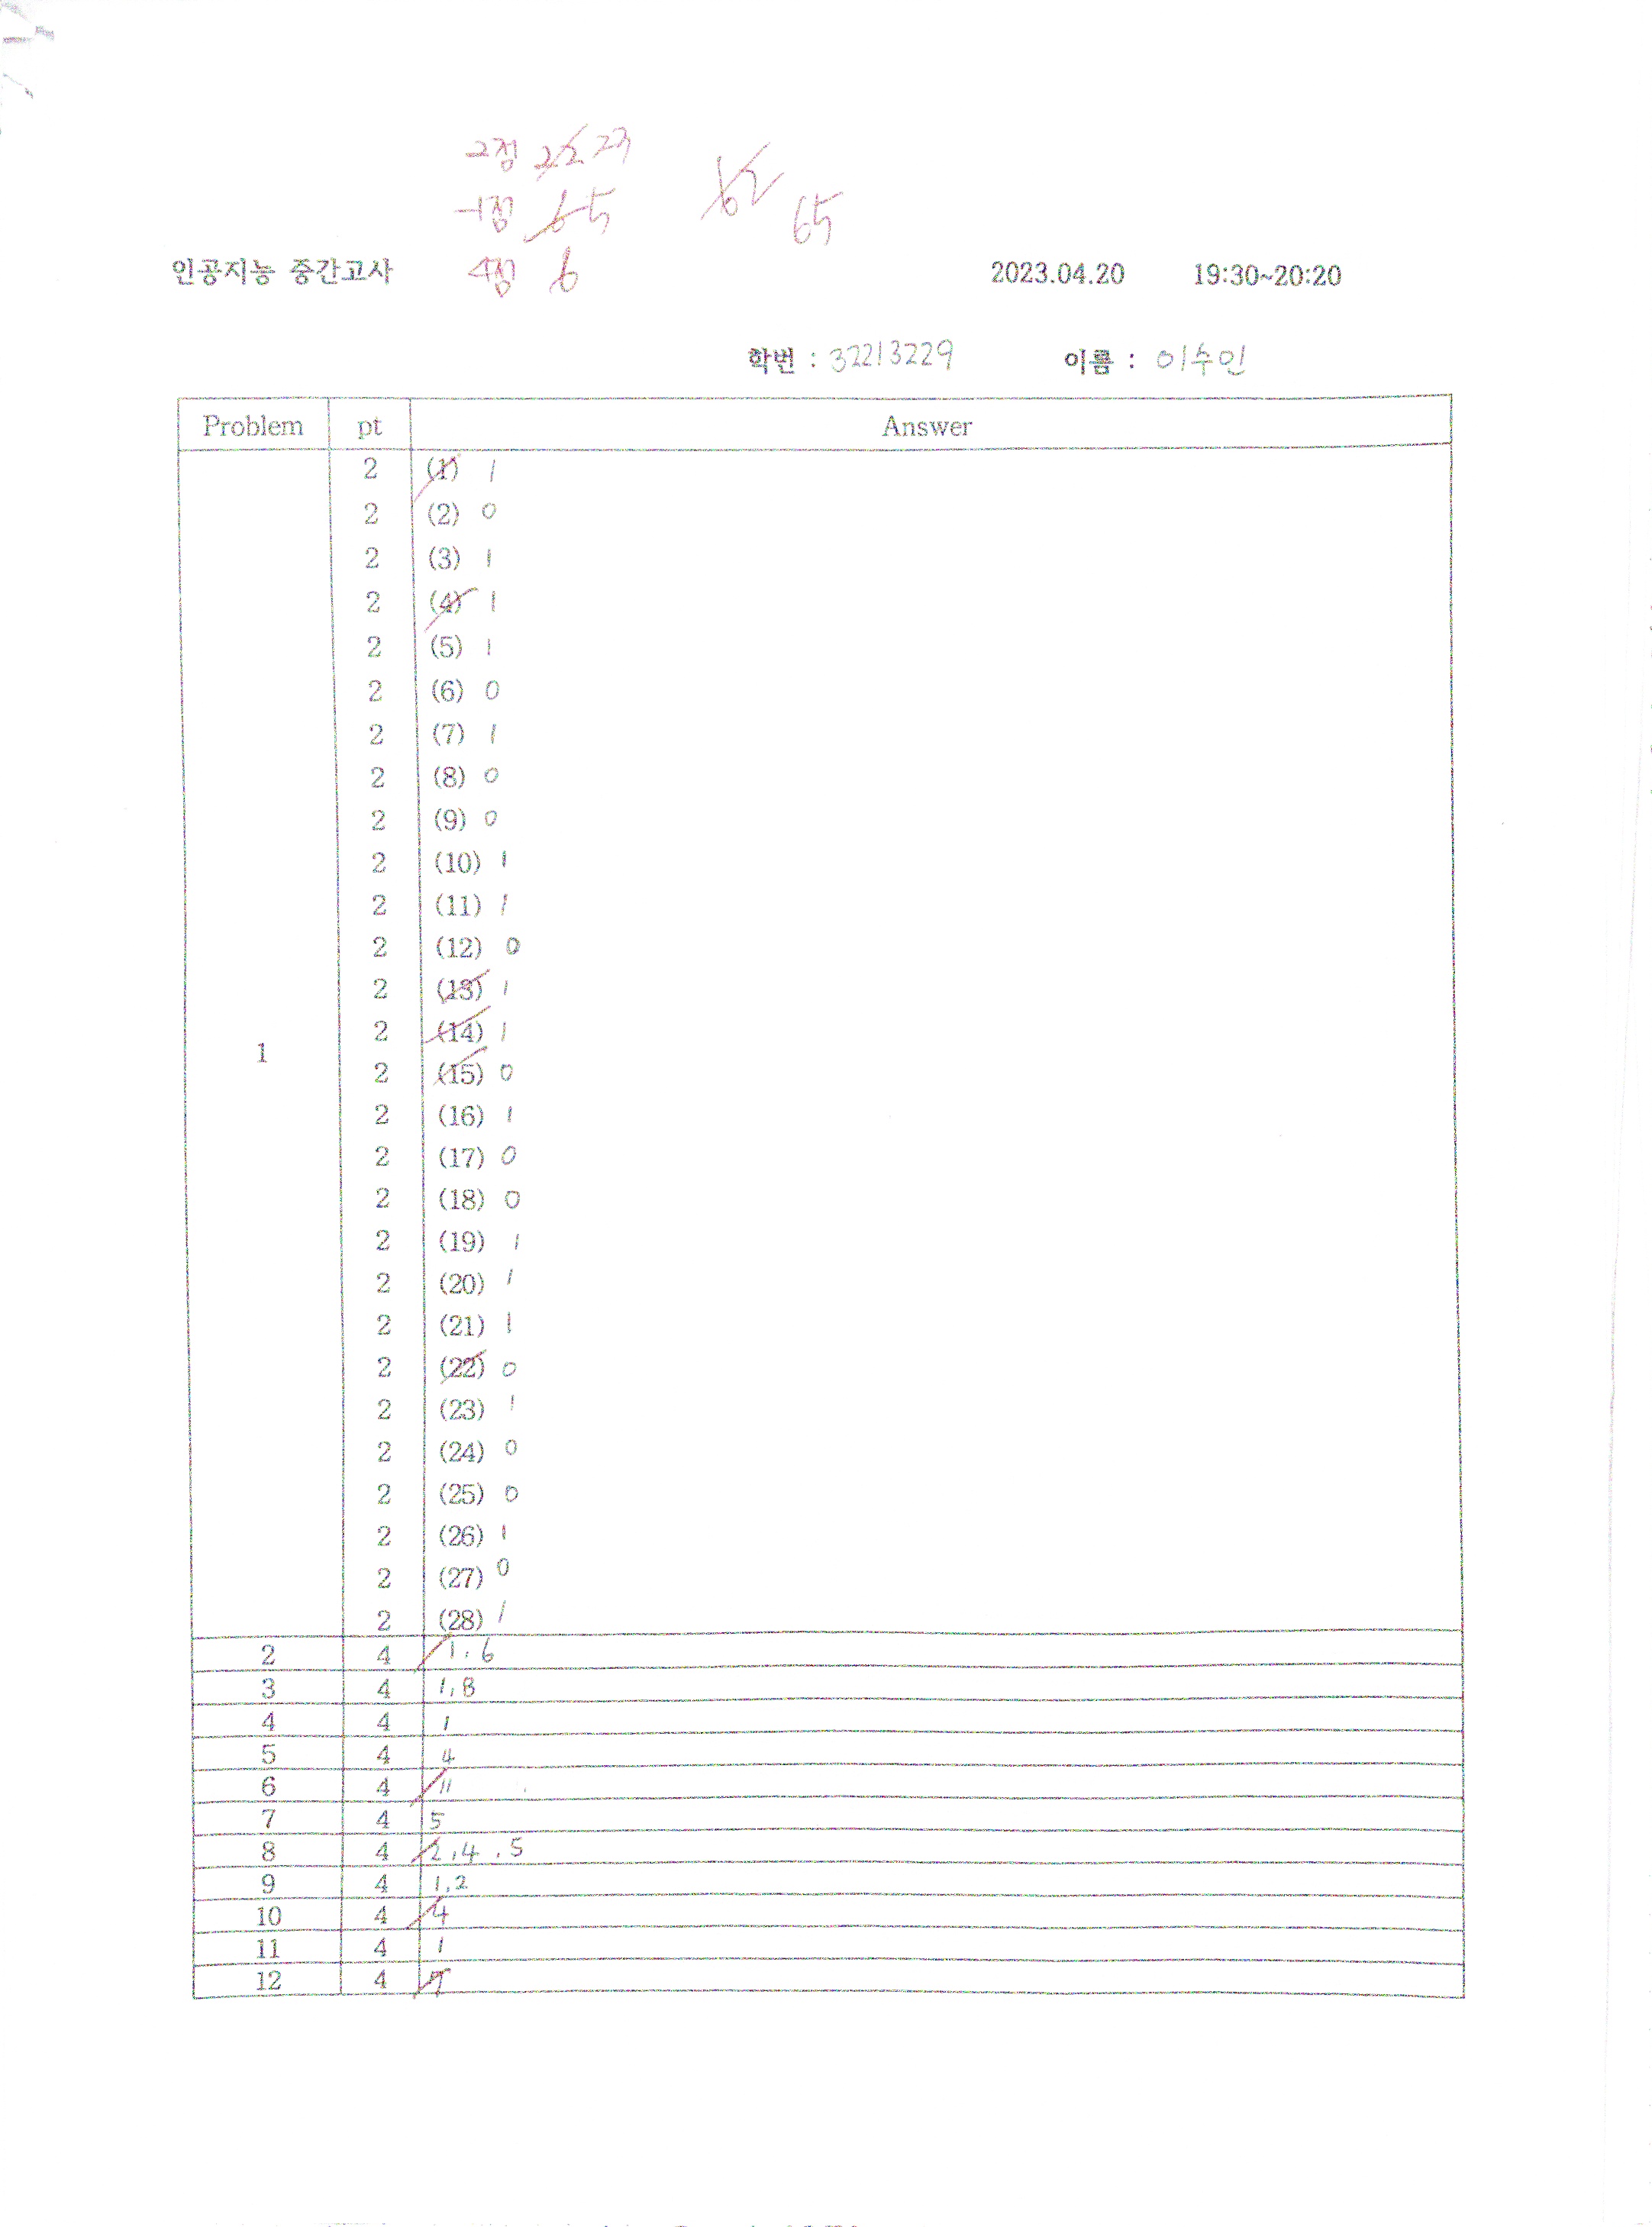 2점 22 23
-1점 6 5 62 65
인공지능 중간고사 4점 6 2023.04.20 19:30~20:20
학번 : 32213229 이름 : 이수인
Problem pt Answer
2 (1) 1
2 (2) 0
2 (3) 1
2 (4) 1
2 (5) 1
2 (6) 0
2 (7) 1
2 (8) 0
2 (9) 0
2 (10) 1
2 (11) 1
2 (12) 0
2 (13) 1
2 (14) 1
1
2 (15) 0
2 (16) 1
2 (17) 0
2 (18) 0
2 (19) 1
2 (20) 1
2 (21) 1
2 (22) 0
2 (23) 1
2 (24) 0
2 (25) 0
2 (26) 1
2 (27) 0
2 (28) 1
2 4 1, 6
3 4 1, 8
4 4 1
5 4 4
6 4 11
7 4 5
8 4 2, 4, 5
9 4 1, 2
10 4 4
11 4 1
12 4